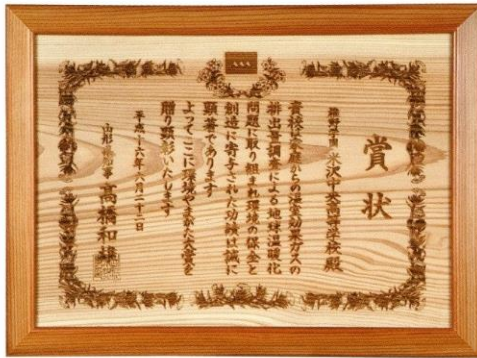 賞状
米沢中央高等学校殿
貴校は家庭からの温室効果ガスの
排出量調査による地球温暖化
問題に取り組まれ環境の保全と
創造に寄与された功績は誠に
顕著であります
よってここに環境やまがた大賞を
贈り顕彰いたします
平成十六年六月二十二日
山形県知事 高橋和雄